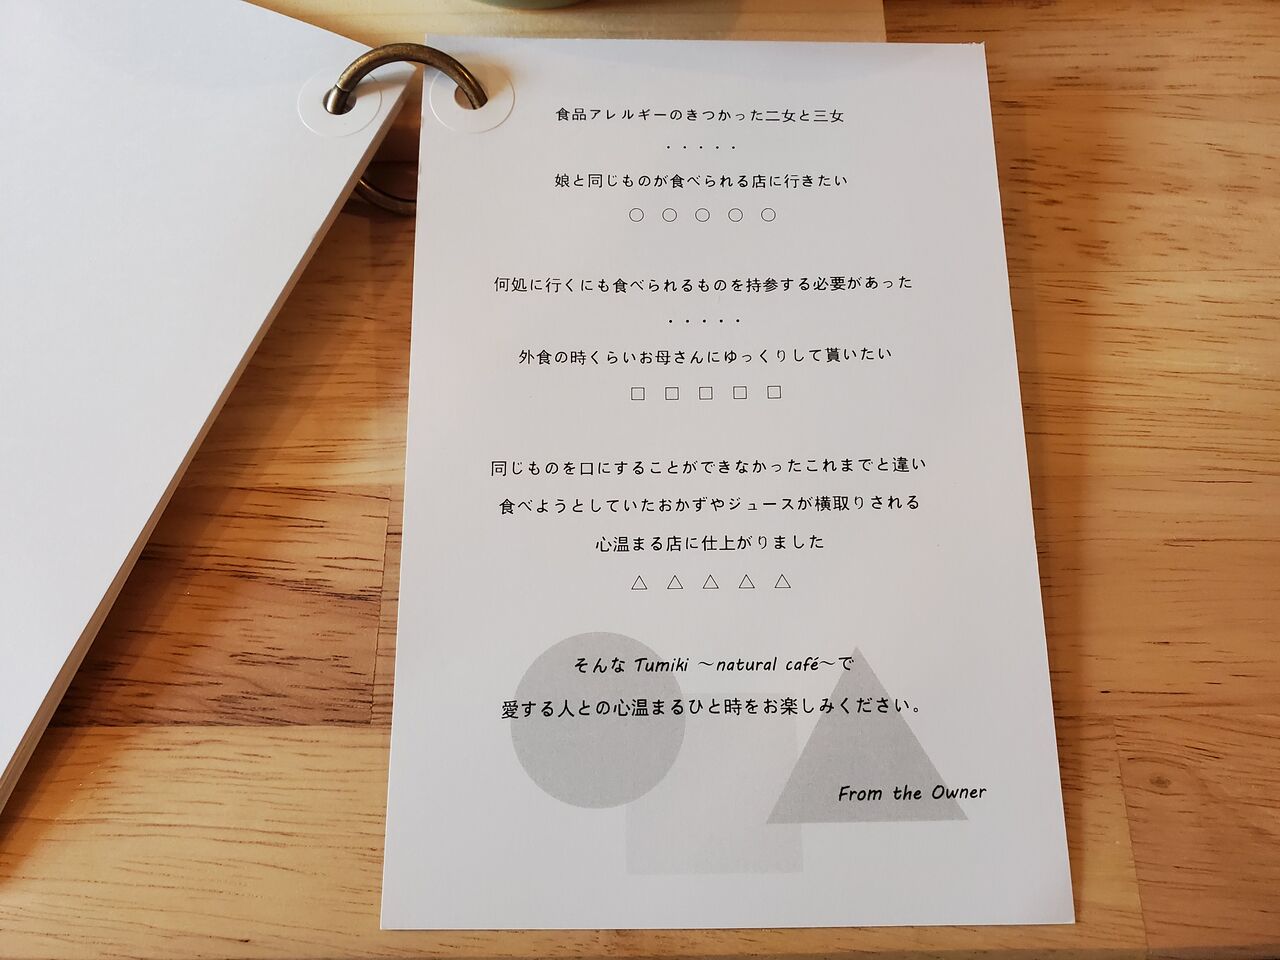 食品アレルギーのきつかった二女と三女
・・・・・
娘と同じものが食べられる店に行きたい
○ ○ ○ ○ ○
何処に行くにも食べられるものを持参する必要があった
・・・・・
外食の時くらいお母さんにゆっくりして貰いたい
□ □ □ □ □
同じものを口にすることができなかったこれまでと違い
食べようとしていたおかずやジュースが横取りされる
心温まる店に仕上がりました
△ △ △ △ △
そんな Tumiki ～natural café～で
愛する人との心温まるひと時をお楽しみください。
From the Owner